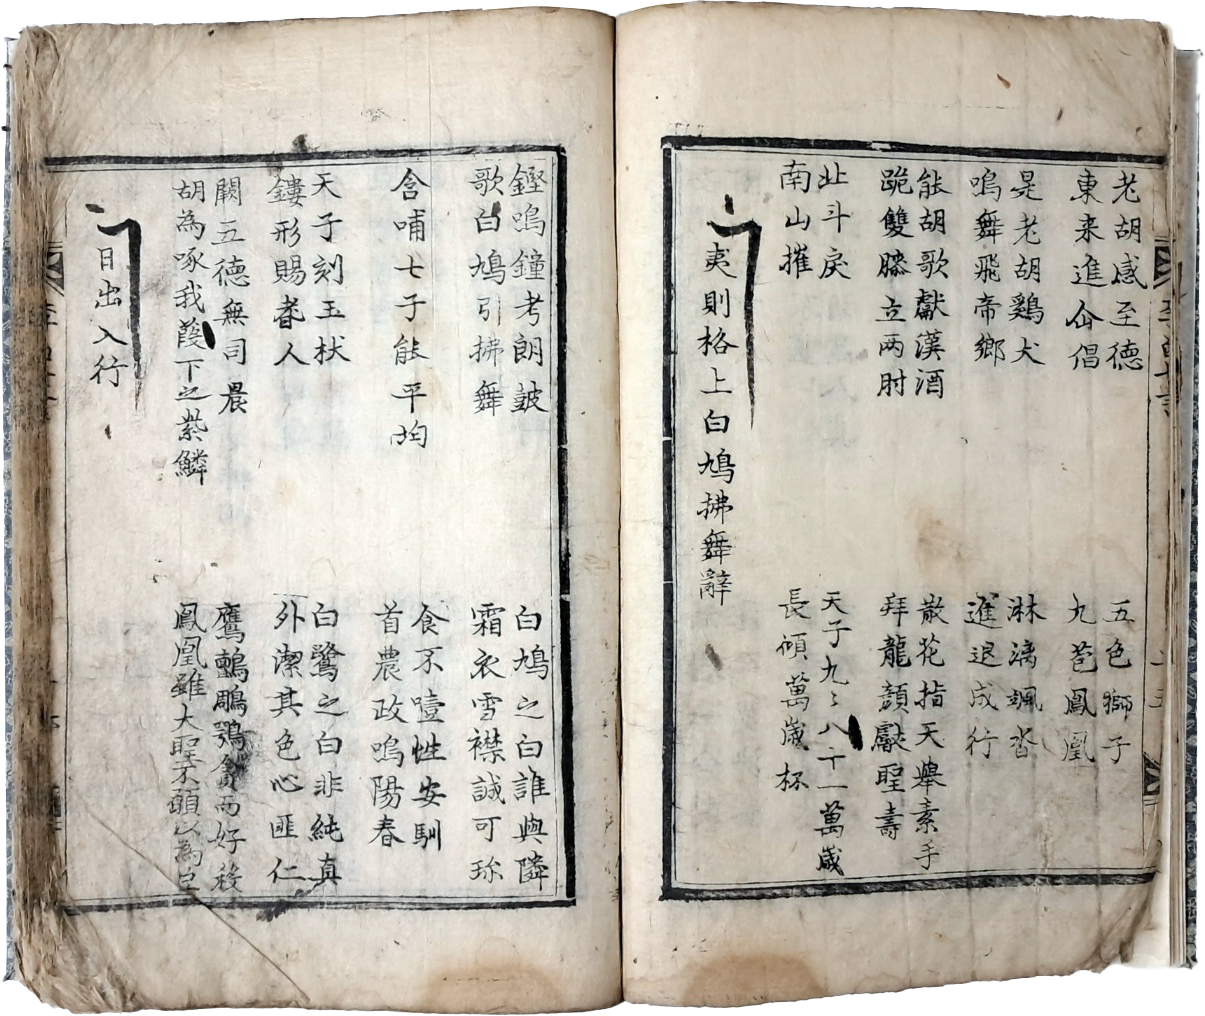 老胡感至德
東来進仚倡
五色獅子
九苞鳳凰
是老胡鷄犬
鳴舞飛帝鄉
淋漓颯沓
進退成行
能胡歌獻漢酒
跪雙膝立两肘
散花指天舉素手
拜龍顔獻聖壽
北斗戾
南山摧
天子九〻八十一萬歲
長傾萬歲杯
夷則格上白鳩拂舞辭
鏗鳴鐘考朗皷
歌白鳩引拂舞
白鳩之白誰與隣
霜衣雪襟誠可珎
含哺七子能平均
食不噎性安馴
首農政鳴陽春
天子刻玉杖
鏤形賜耆人
白鷺之白非純真
外潔其色心匪仁
闕五德無司晨
胡為啄我葭下之紫鱗
鷹鸇鵰鶚貪而好殺
鳳凰雖大聖不願以為臣
日出入行